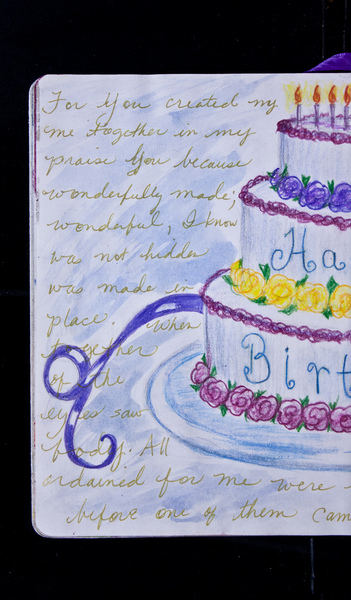 For You created my
me together in my
praise You because
wonderfully made;
wonderful, I know
was not hidden
was made in
place. When
together
of the
eyes saw
body. All
ordained for me were
before one of them cam
Ha
Birt